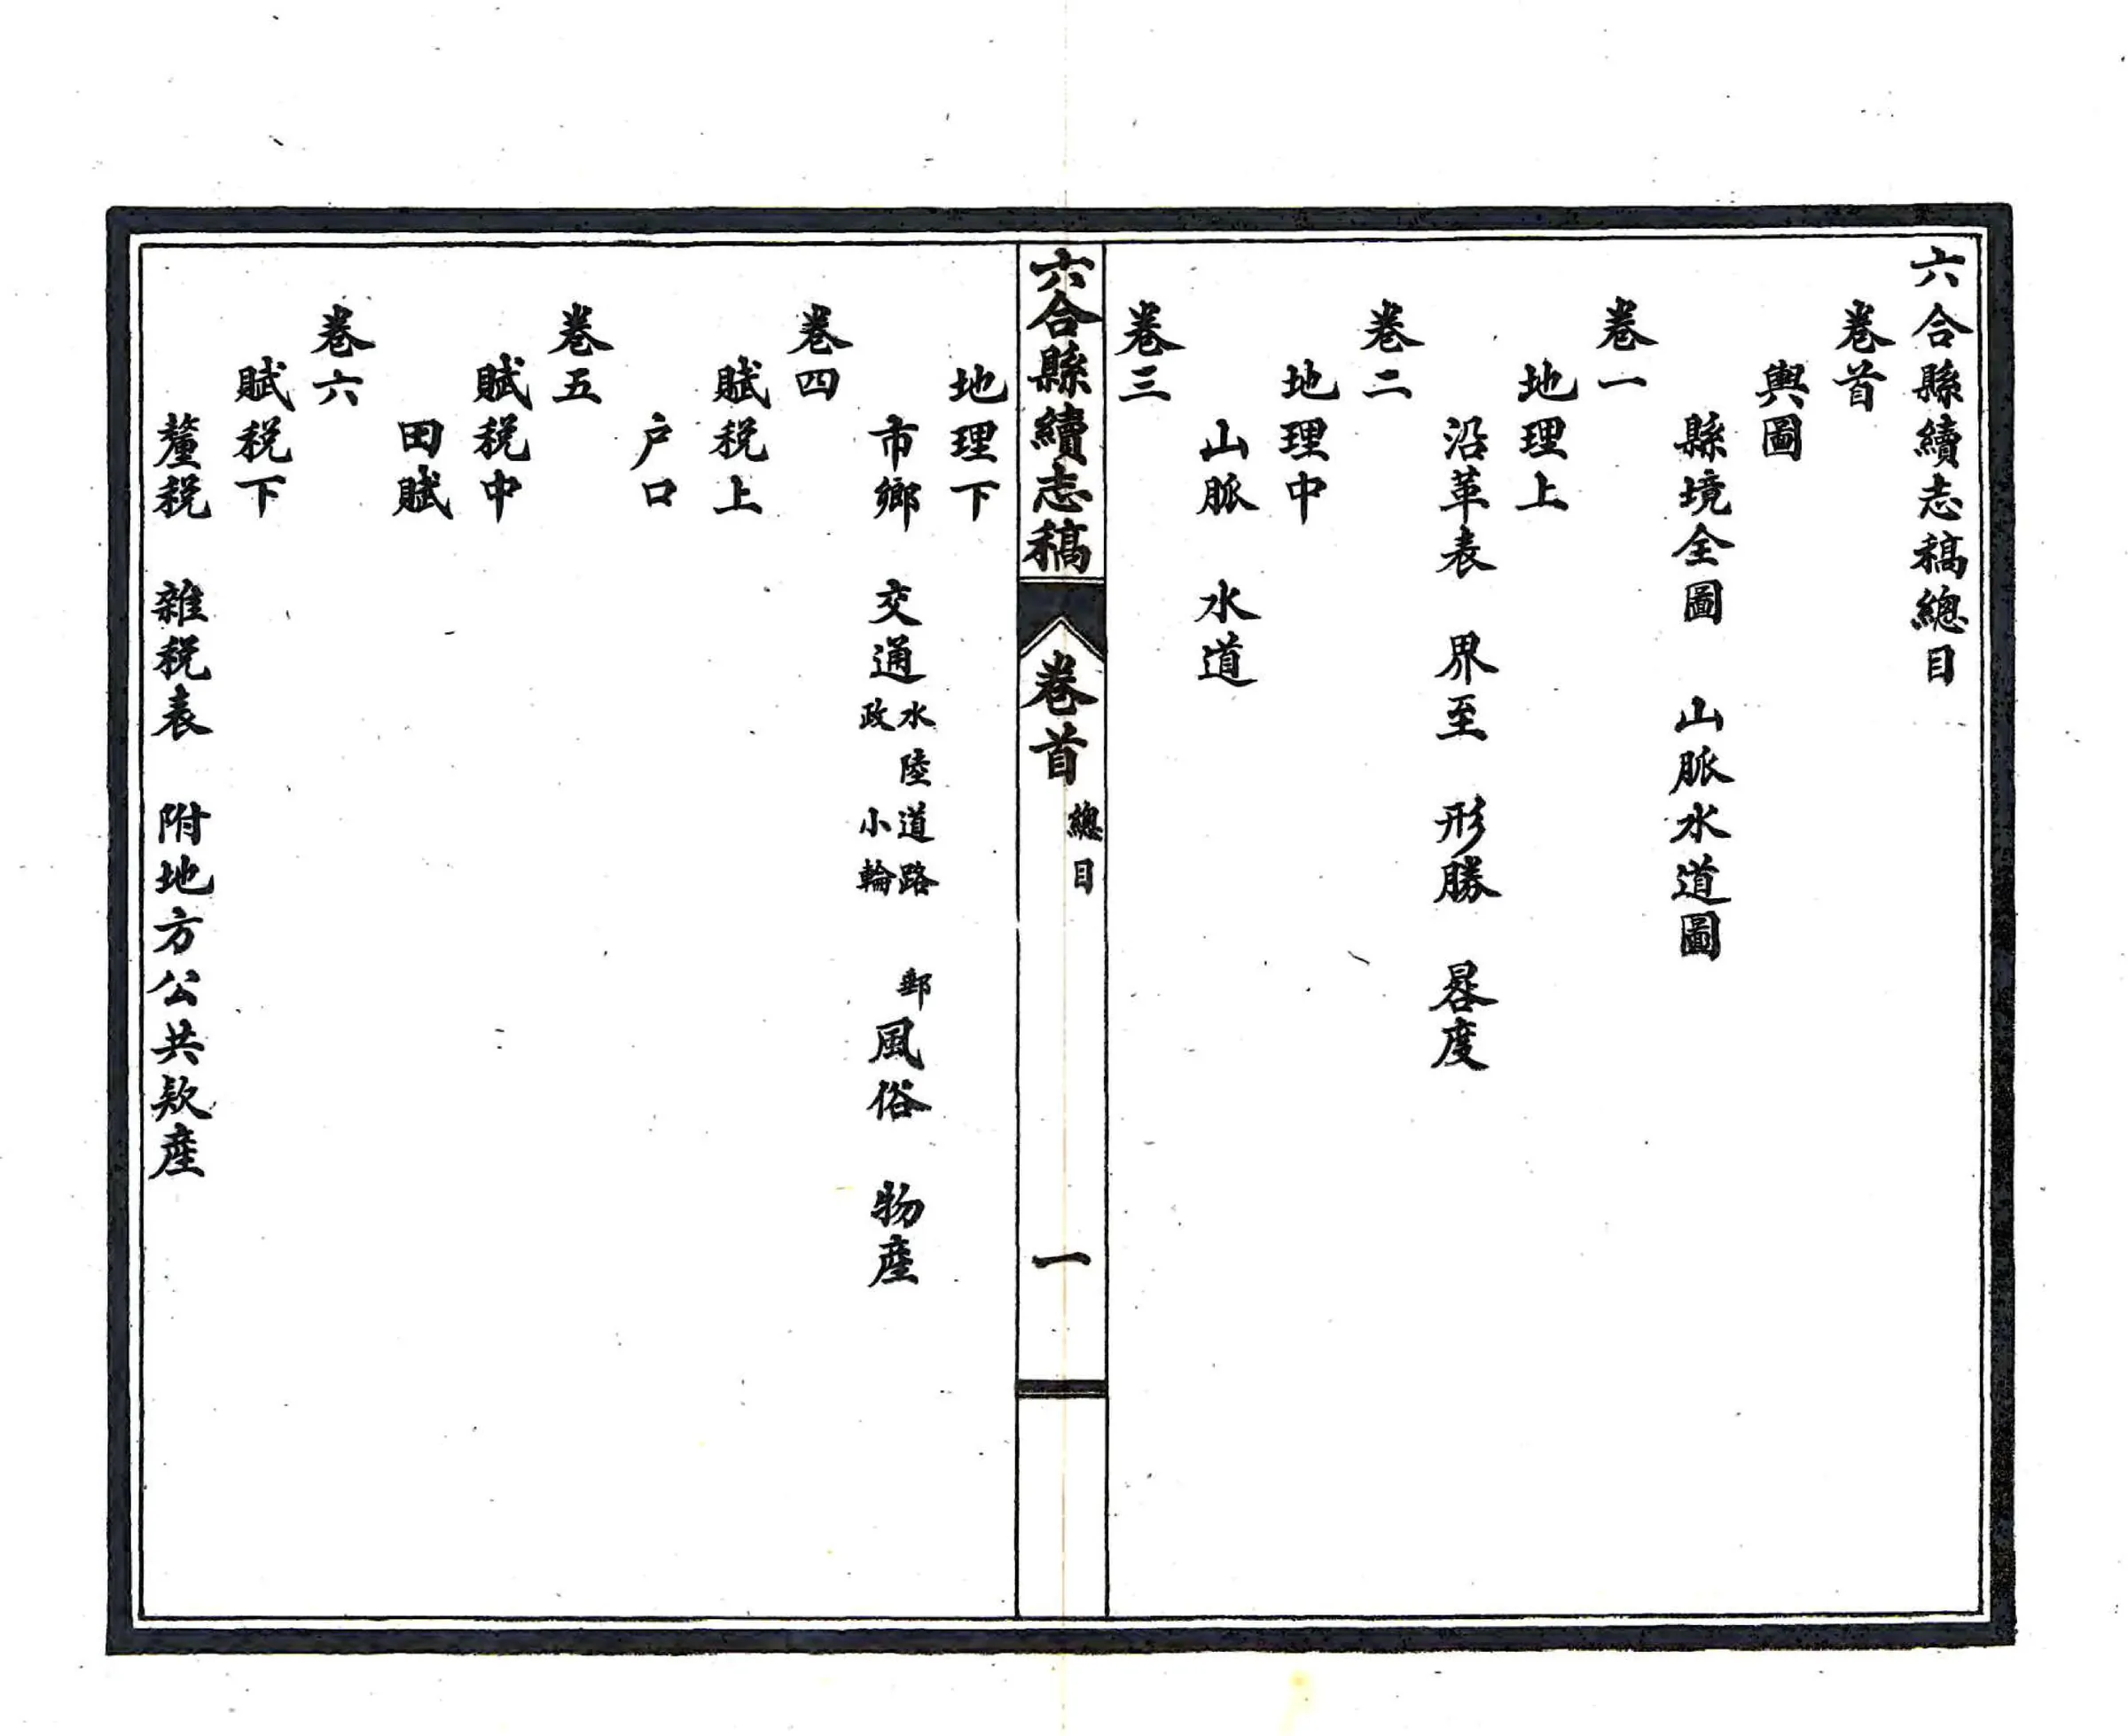 六合縣續志稿總目
卷首
輿圖
縣境全圖　山脈水道圖
卷一
地理上
沿革表　界至　形勝　晷度
卷二
地理中
山脈　水道
卷三
六合縣續志稿　卷首　總目　一
地理下
市鄉　交通水陸道路　郵政　小輪　風俗　物產
卷四
賦稅上
戶口
卷五
賦稅中
田賦
卷六
賦稅下
釐稅　雜稅表　附地方公共款產